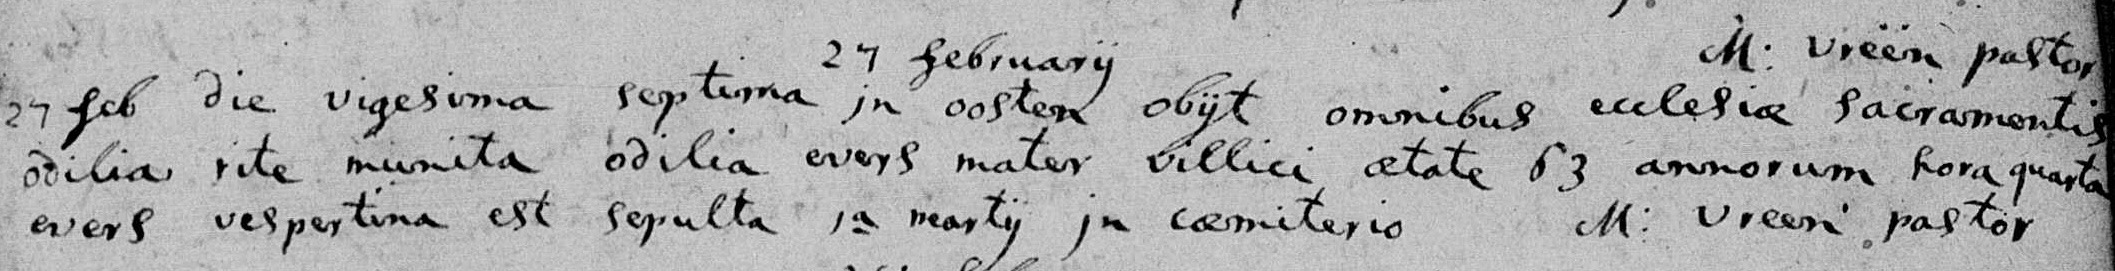 27 februarij M: vreën pastor
27 feb die vigesima septima in oosten obijt omnibus ecclesiæ sacramentis
odilia rite munita odilia evers mater villici ætate 63 annorum hora quarta
evers vespertina est sepulta 1a martij in cæmiterio M: vreen pastor